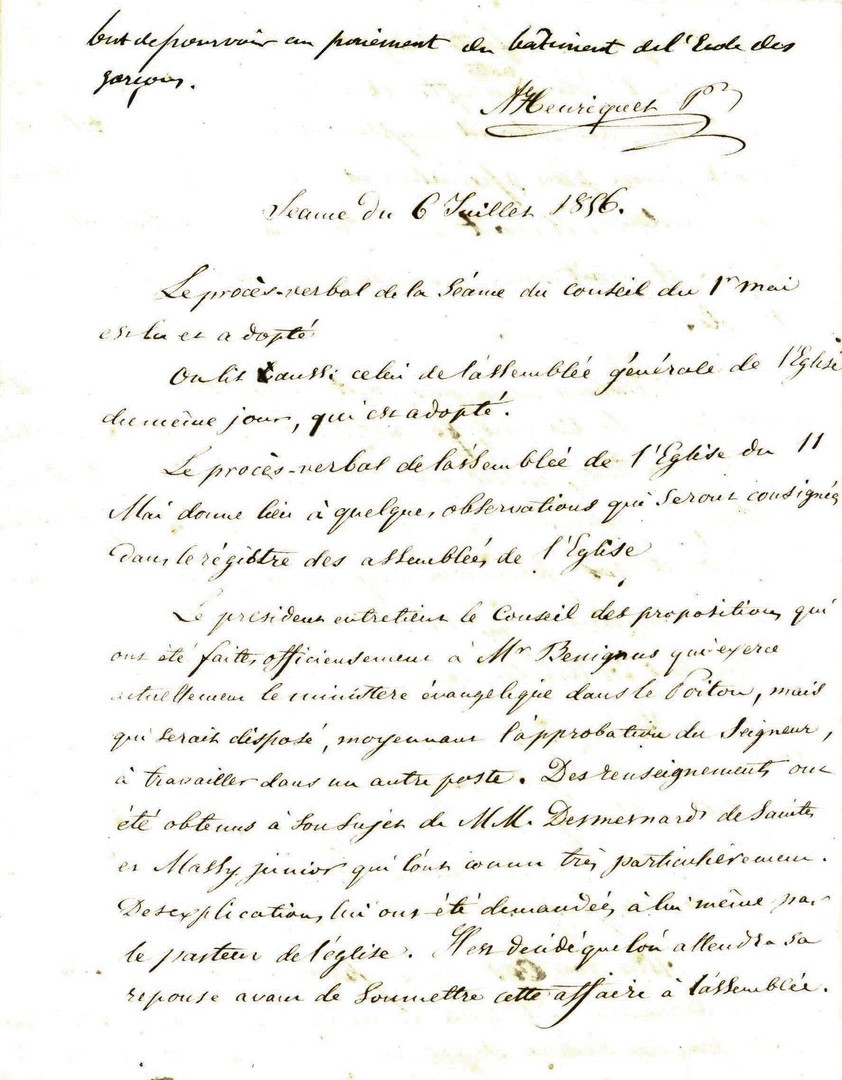 but de pourvoir au paiement du batiment de l'Ecole des
garçons.
A Henriquet P
Séance du 6 Juillet 1856.
Le procès-verbal de la Séance du Conseil du 1r mai
est lu et adopté
On lit aussi celui de l'assemblée générale de l'Eglise
du même jour, qui est adopté.
Le procès-verbal de l'assemblée de l'Eglise du 11
Mai donne lieu à quelques observations qui seront consignées
dans le régistre des assemblées de l'Eglise
Le président entretient le Conseil des propositions qui
ont été faites officieusement à Mr Benignus qui exerce
actuellement le ministère évangelique dans le Poitou, mais
qui serait disposé, moyennant l'approbation du Seigneur,
à travailler dans un autre poste. Des renseignements ont
été obtenus à son sujet de MM. Desmesnards de Saintes
et Massy junior qui l'ont connu très particulièrement.
Des explications lui ont été demandées à lui même par
le pasteur de l'église. Il est décidé que l'on attendra sa
réponse avant de soumettre cette affaire à l'assemblée.